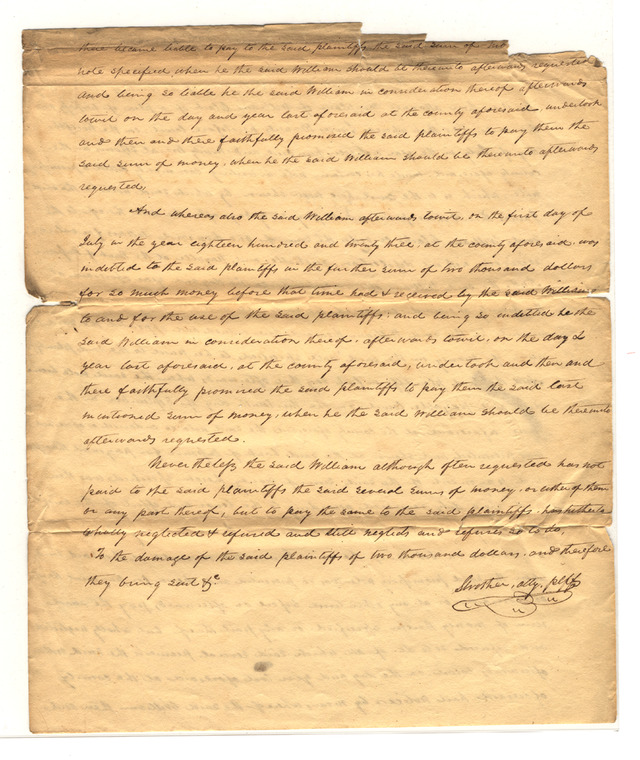 there became liable to pay to the said plaintiffs the said sum of two
note specified when he the said William should be thereunto afterwards requested
and being so liable he the said William in consideration thereof afterwards
towit on the day and year last aforesaid at the county aforesaid, undertook
and then and there faithfully promised the said plaintiffs to pay them the
said sum of money, when he the said William should be thereunto afterwards
requested,
And whereas also the said William afterwards towit, on the first day of
July in the year eighteen hundred and twenty three, at the county aforesaid, was
indebted to the said plaintiffs in the further sum of two thousand dollars
for so much money before that time had & received by the said William
to and for the use of the said plaintiffs: and being so indebted he the
said William in consideration thereof, afterwards towit, on the day &
year last aforesaid, at the county aforesaid, undertook and then and
there faithfully promised the said plaintiffs to pay them the said last
mentioned sum of money, when he the said William should be thereunto
afterwards requested.
Nevertheless the said William although often requested has not
paid to the said plaintiffs the said several sums of money, or either of them
or any part thereof, but to pay the same to the said plaintiffs, has hitherto
wholly neglected & refused and still neglects and refuses so to do,
To the damage of the said plaintiffs of two thousand dollars, and therefore
they bring suit &c
Strother, atty. plffs